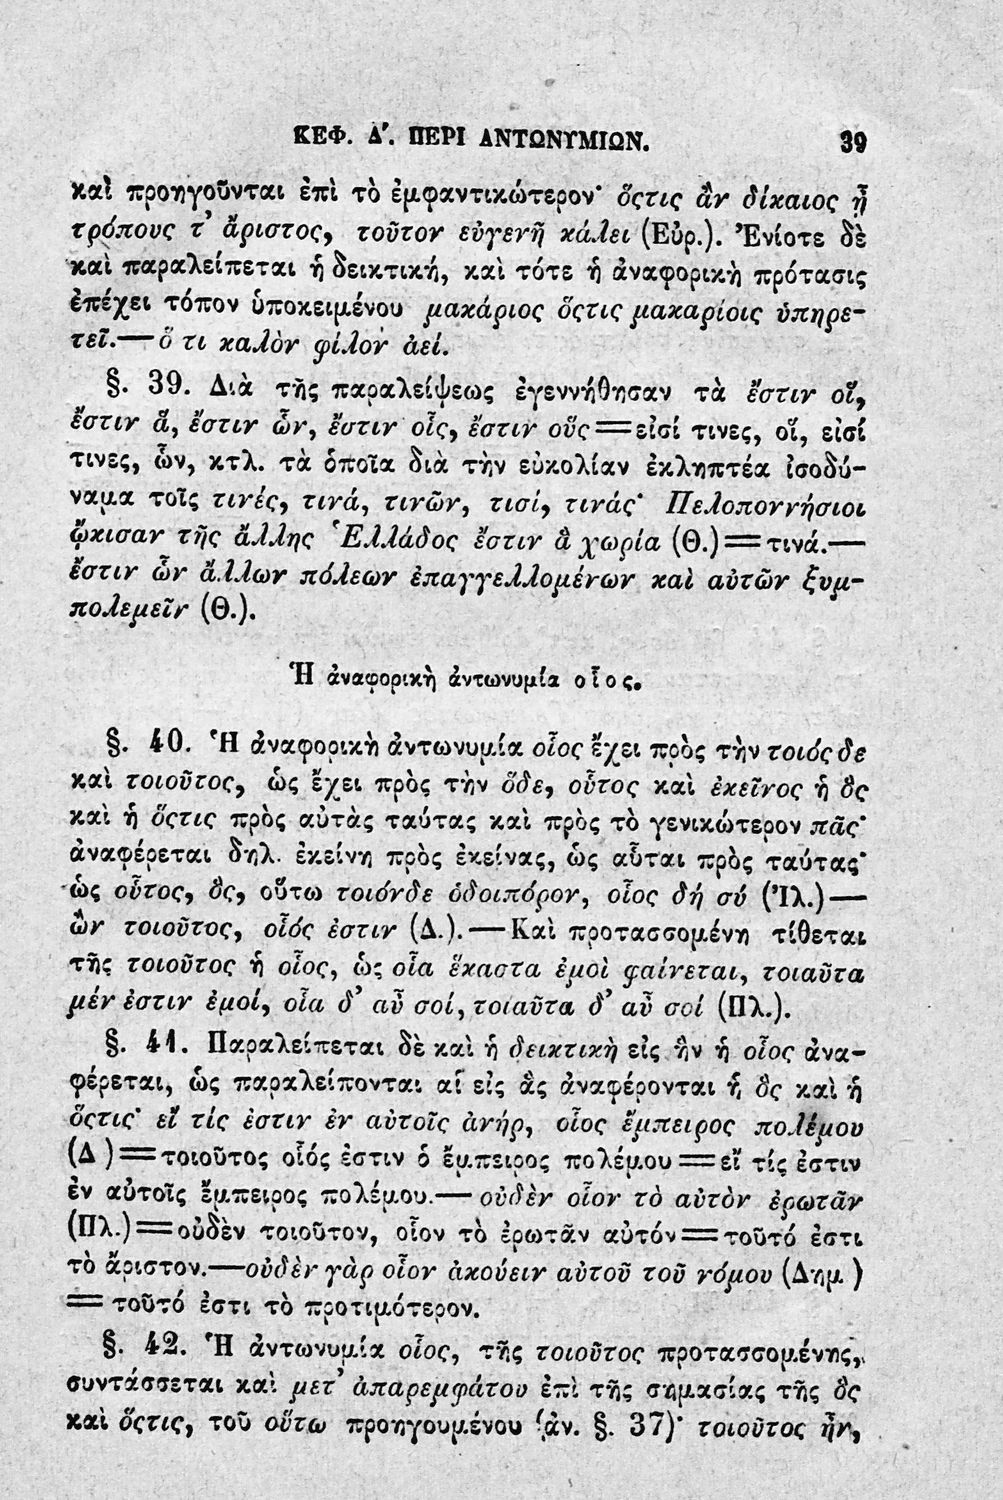 ΚΕΦ. Δ΄. ΠΕΡΙ ΑΝΤΩΝΥΜΙΩΝ. 39
καὶ προηγοῦνται ἐπὶ τὸ ἐμφαντικώτερον· ὅςτις ἂν δίκαιος ᾖ
τρόπους τ’ ἄριστος, τοῦτον εὐγενῆ κάλει (Εὐρ.). Ἐνίοτε δὲ
καὶ παραλείπεται ἡ δεικτική, καὶ τότε ἡ ἀναφορικὴ πρότασις
ἐπέχει τόπον ὑποκειμένου μακάριος ὅςτις μακαρίοις ὑπηρε-
τεῖ.—ὅ τι καλὸν φίλον ἀεί.
§. 39. Διὰ τῆς παραλείψεως ἐγεννήθησαν τὰ ἔστιν οἵ,
ἔστιν ἅ, ἔστιν ὧν, ἔστιν οἷς, ἔστιν οὕς=εἰσί τινες, οἵ, εἰσί
τινες, ὧν, κτλ. τὰ ὁποῖα διὰ τὴν εὐκολίαν ἐκληπτέα ἰσοδύ-
ναμα τοῖς τινές, τινά, τινῶν, τισί, τινάς· Πελοποννήσιοι
ᾤκισαν τῆς ἄλλης Ἑλλάδος ἔστιν ἃ χωρία (Θ.)=τινά.—
ἔστιν ὧν ἄλλων πόλεων ἐπαγγελλομένων καὶ αὐτῶν ξυμ-
πολεμεῖν (Θ.).
Ἡ ἀναφορικὴ ἀντωνυμία οἷος.
§. 40. Ἡ ἀναφορικὴ ἀντωνυμία οἷος ἔχει πρὸς τὴν τοιόςδε
καὶ τοιοῦτος, ὡς ἔχει πρὸς τὴν ὅδε, οὗτος καὶ ἐκεῖνος ἡ ὃς
καὶ ἡ ὅςτις πρὸς αὐτὰς ταύτας καὶ πρὸς τὸ γενικώτερον πᾶς·
ἀναφέρεται δηλ. ἐκείνη πρὸς ἐκείνας, ὡς αὗται πρὸς ταύτας·
ὡς οὗτος, ὃς, οὕτω τοιόνδε ὁδοιπόρον, οἷος δή σύ (Ἰλ.)—
ὢν τοιοῦτος, οἷός ἐστιν (Δ.).—Καὶ προτασσομένη τίθεται
τῆς τοιοῦτος ἡ οἷος, ὡς οἷα ἕκαστα ἐμοὶ φαίνεται, τοιαῦτα
μέν ἐστιν ἐμοί, οἷα δ’ αὖ σοί, τοιαῦτα δ’ αὖ σοί (Πλ.).
§. 41. Παραλείπεται δὲ καὶ ἡ δεικτικὴ εἰς ἣν ἡ οἷος ἀνα-
φέρεται, ὡς παραλείπονται αἱ εἰς ἃς ἀναφέρονται ἡ ὃς καὶ ἡ
ὅςτις· εἴ τίς ἐστιν ἐν αὐτοῖς ἀνήρ, οἷος ἔμπειρος πολέμου
(Δ )=τοιοῦτος οἷός ἐστιν ὁ ἔμπειρος πολέμου=εἴ τίς ἐστιν
ἐν αὐτοῖς ἔμπειρος πολέμου.—οὐδὲν οἷον τὸ αὐτὸν ἐρωτᾶν
(Πλ.)=οὐδὲν τοιοῦτον, οἷον τὸ ἐρωτᾶν αὐτόν=τοῦτό ἐστι
τὸ ἄριστον.—οὐδὲν γὰρ οἷον ἀκούειν αὐτοῦ τοῦ νόμου (Δημ )
= τοῦτό ἐστι τὸ προτιμότερον.
§. 42. Ἡ ἀντωνυμία οἷος, τῆς τοιοῦτος προτασσομένης,
συντάσσεται καὶ μετ’ ἀπαρεμφάτου ἐπὶ τῆς σημασίας τῆς ὃς
καὶ ὅςτις, τοῦ οὕτω προηγουμένου (ἀν. §. 37)· τοιοῦτος ἦν,